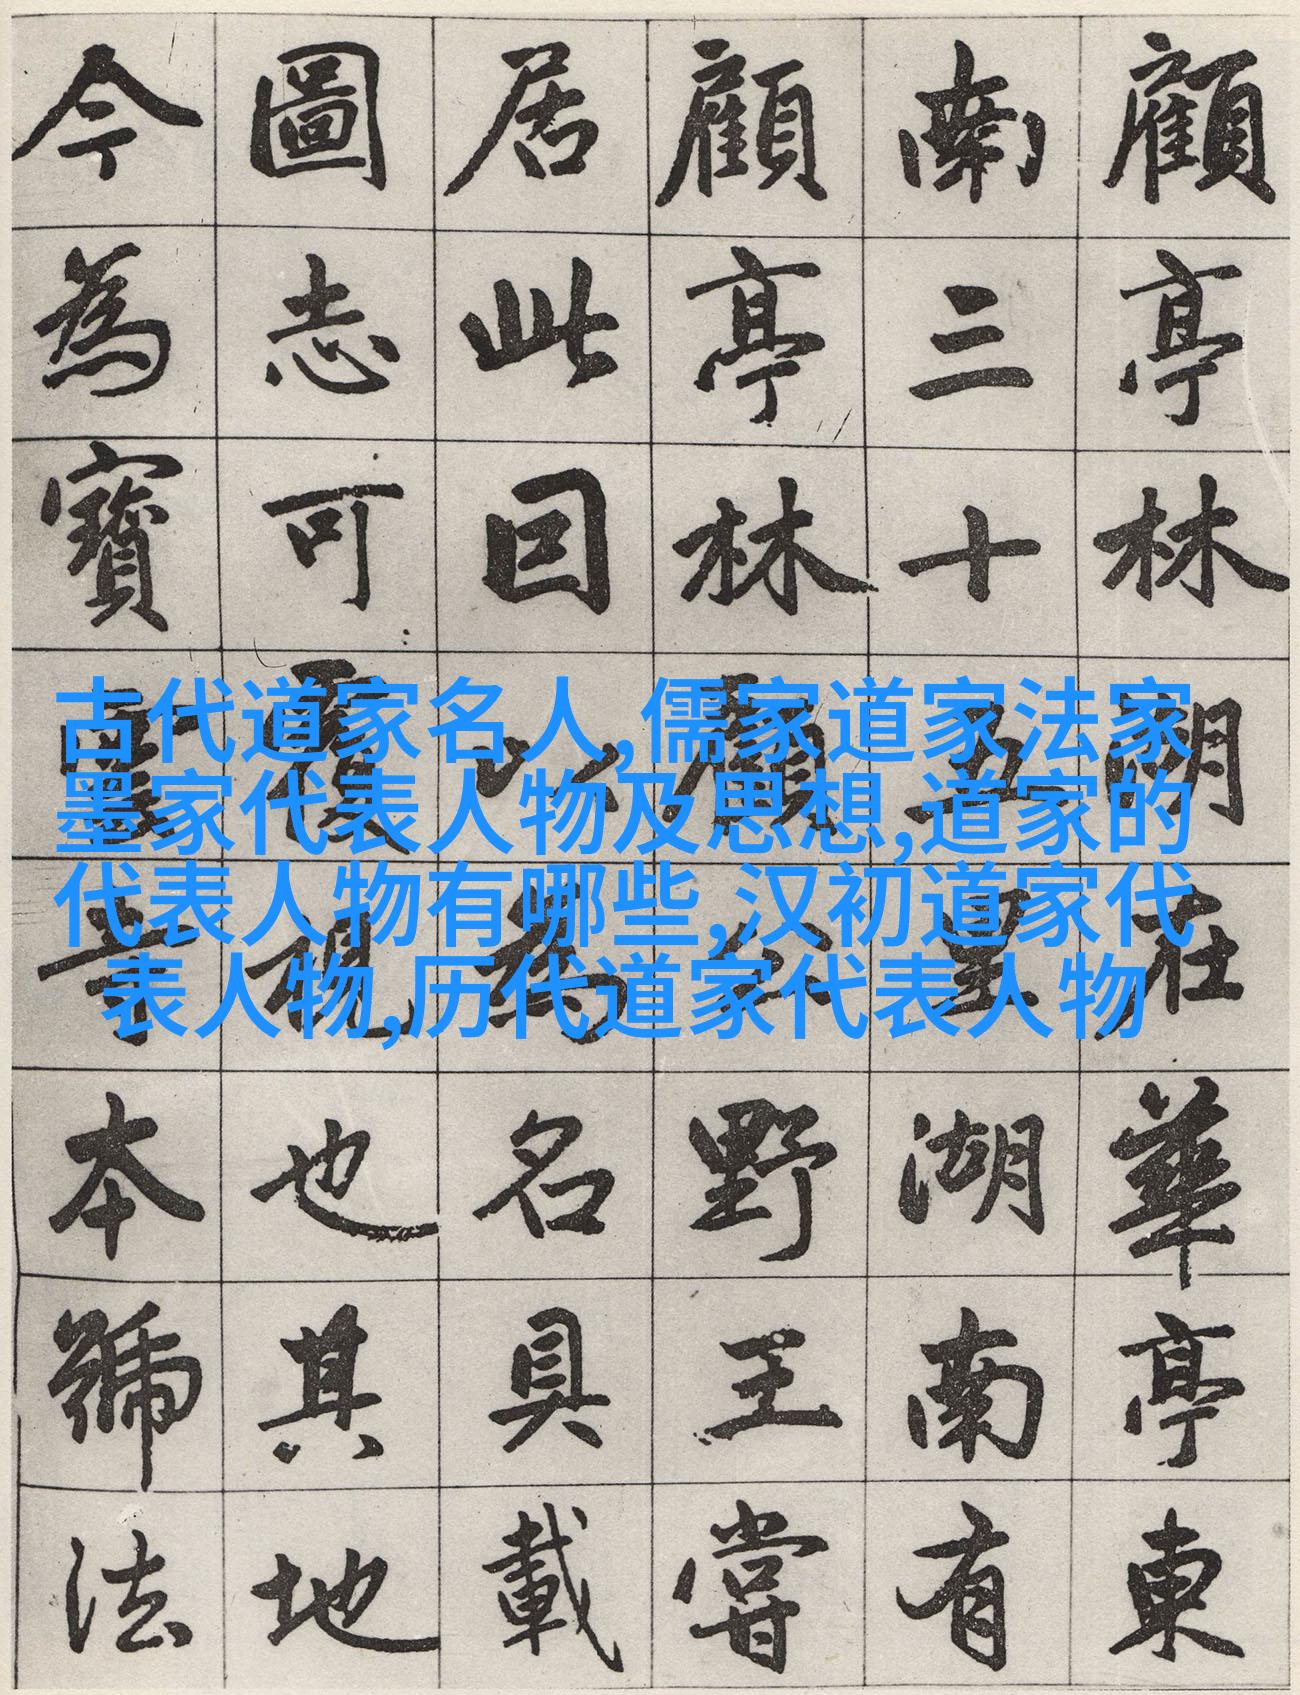 顧亭林湖在華亭東
南三十五里湖南有
顧亭林顧公野王嘗
居此因以為名具載
圖志可覆視也其地
今為寶雲寺本號法
古代道家名人,儒家道家法家
墨家代表人物及思想,道家的
代表人物有哪些,汉初道家代
表人物,历代道家代表人物